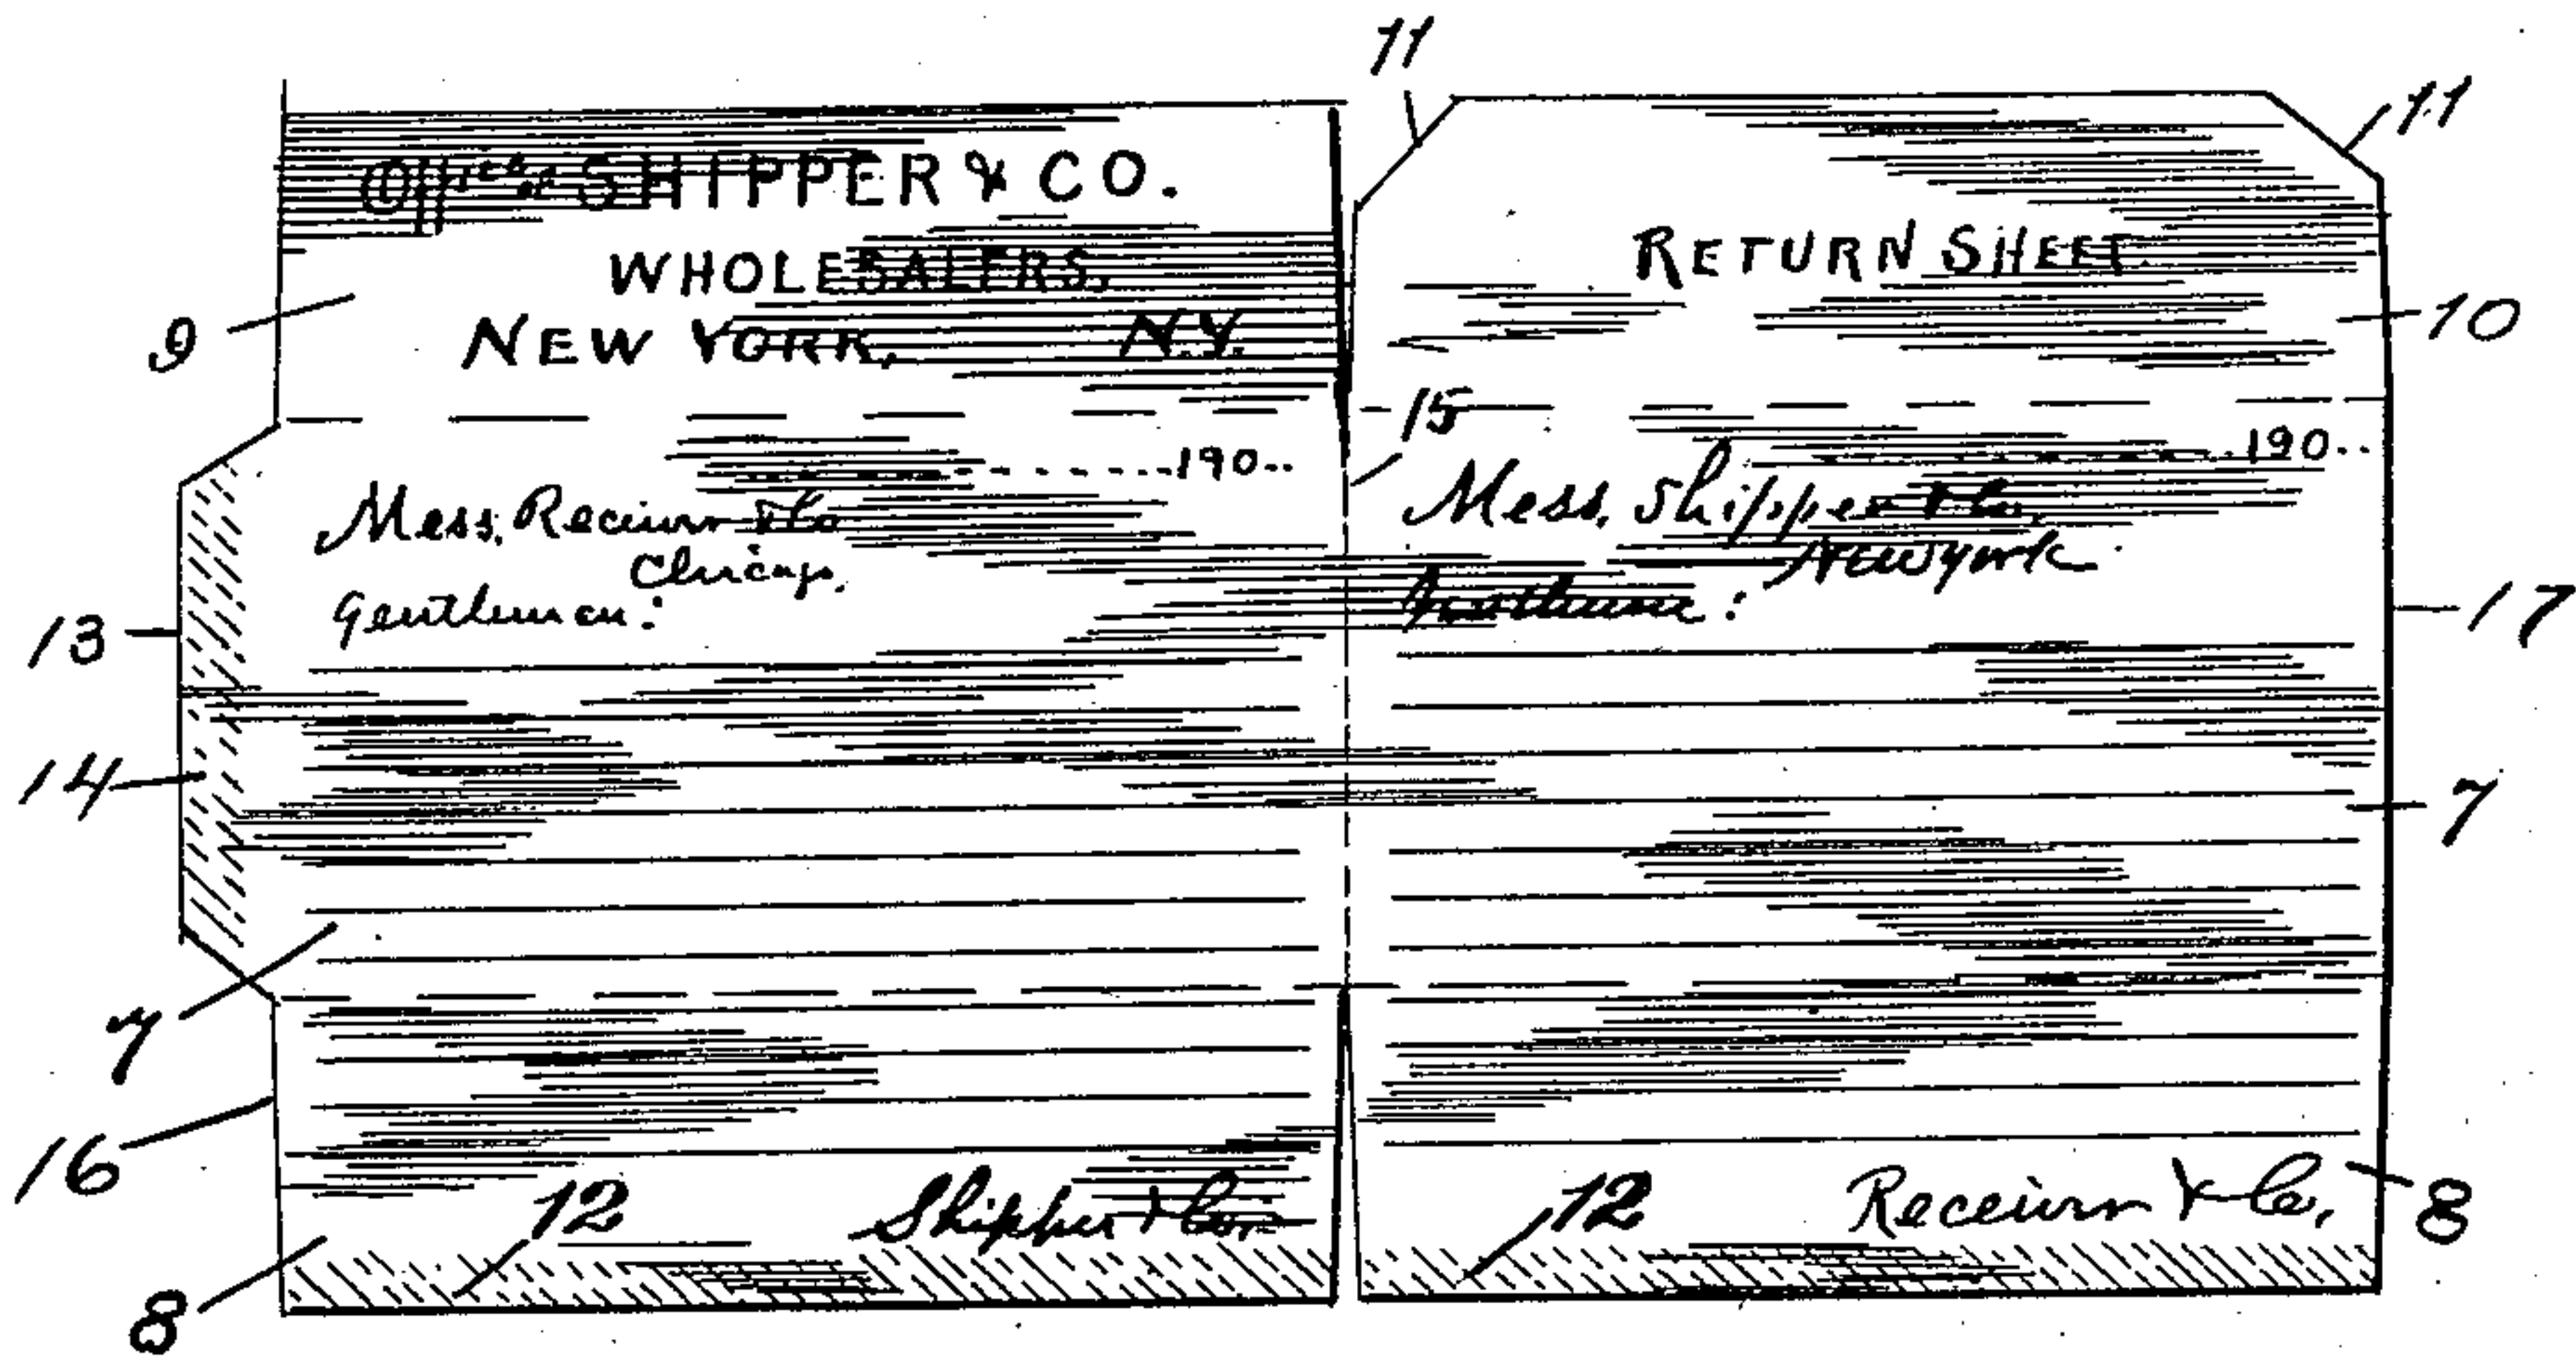 11
11
Office of SHIPPER & CO.
WHOLESALERS,
NEW YORK, N.Y.
RETURN SHEET
9
10
15
190..
190..
Mess. Receiver & Co
Chicago.
Gentlemen:
Mess. Shipper & Co.
New York
Gentlemen:
13
17
14
7
7
16
12
Shipper & Co.
12
Receiver & Co.
8
8